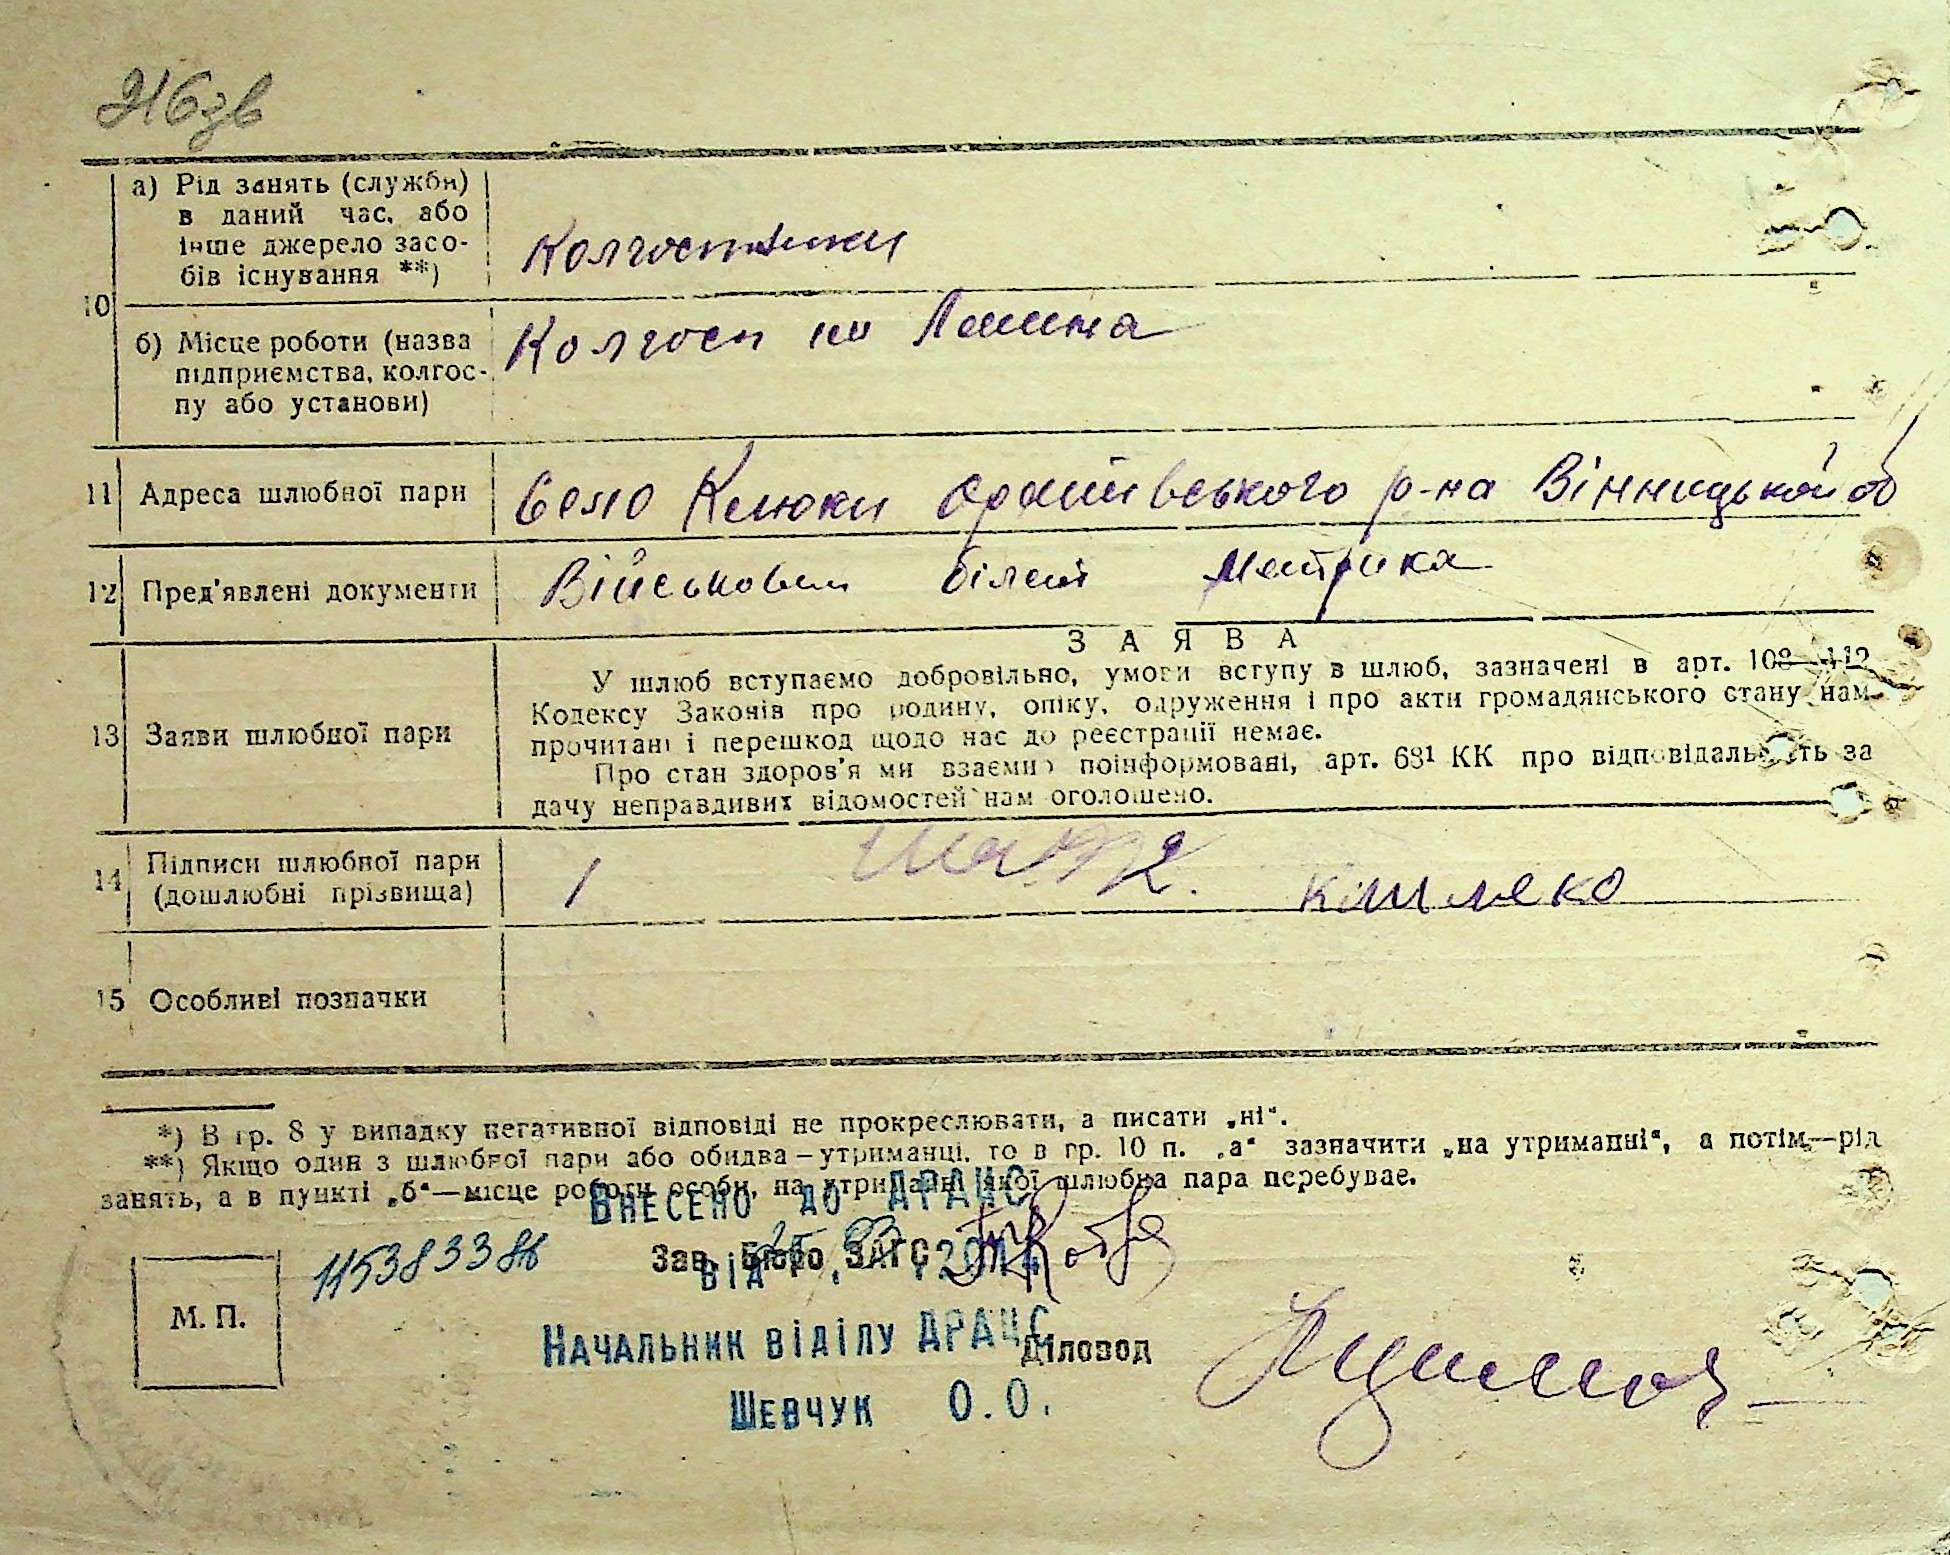 216зв
а) Рід занять (служби)
в даний час, або
інше джерело засо-
бів існування **)
Колгоспники
10
б) Місце роботи (назва
підприємства, колгос-
пу або установи)
Колгосп Леніна
11 Адреса шлюбної пари
село Клюки р-на Вінницької об
12 Пред'явлені документи
Військовий білет Метрика
13 Заяви шлюбної пари
ЗАЯВА
У шлюб вступаємо добровільно, умови вступу в шлюб, зазначені в арт. 108—112
Кодексу Законів про родину, опіку, одруження і про акти громадянського стану нам
прочитані і перешкод щодо нас до реєстрації немає.
Про стан здоров'я ми взаємно поінформовані, арт. 68¹ КК про відповідальність за
дачу неправдивих відомостей нам оголошено.
14 Підписи шлюбної пари
(дошлюбні прізвища)
1 2.
15 Особливі позначки
*) В гр. 8 у випадку негативної відповіді не прокреслювати, а писати „ні“.
**) Якщо один з шлюбної пари або обидва – утриманці, то в гр. 10 п. „а“ зазначити „на утриманні“, а потім—рід
занять, а в пункті „б“—місце роботи особи, на утриманні якої шлюбна пара перебуває.
Внесено до ДРАЦС
Зав. Бюро ЗАГС
від 2014
115383386
М. П.
Начальник відділу ДРАЦС
Діловод
Шевчук О.О.